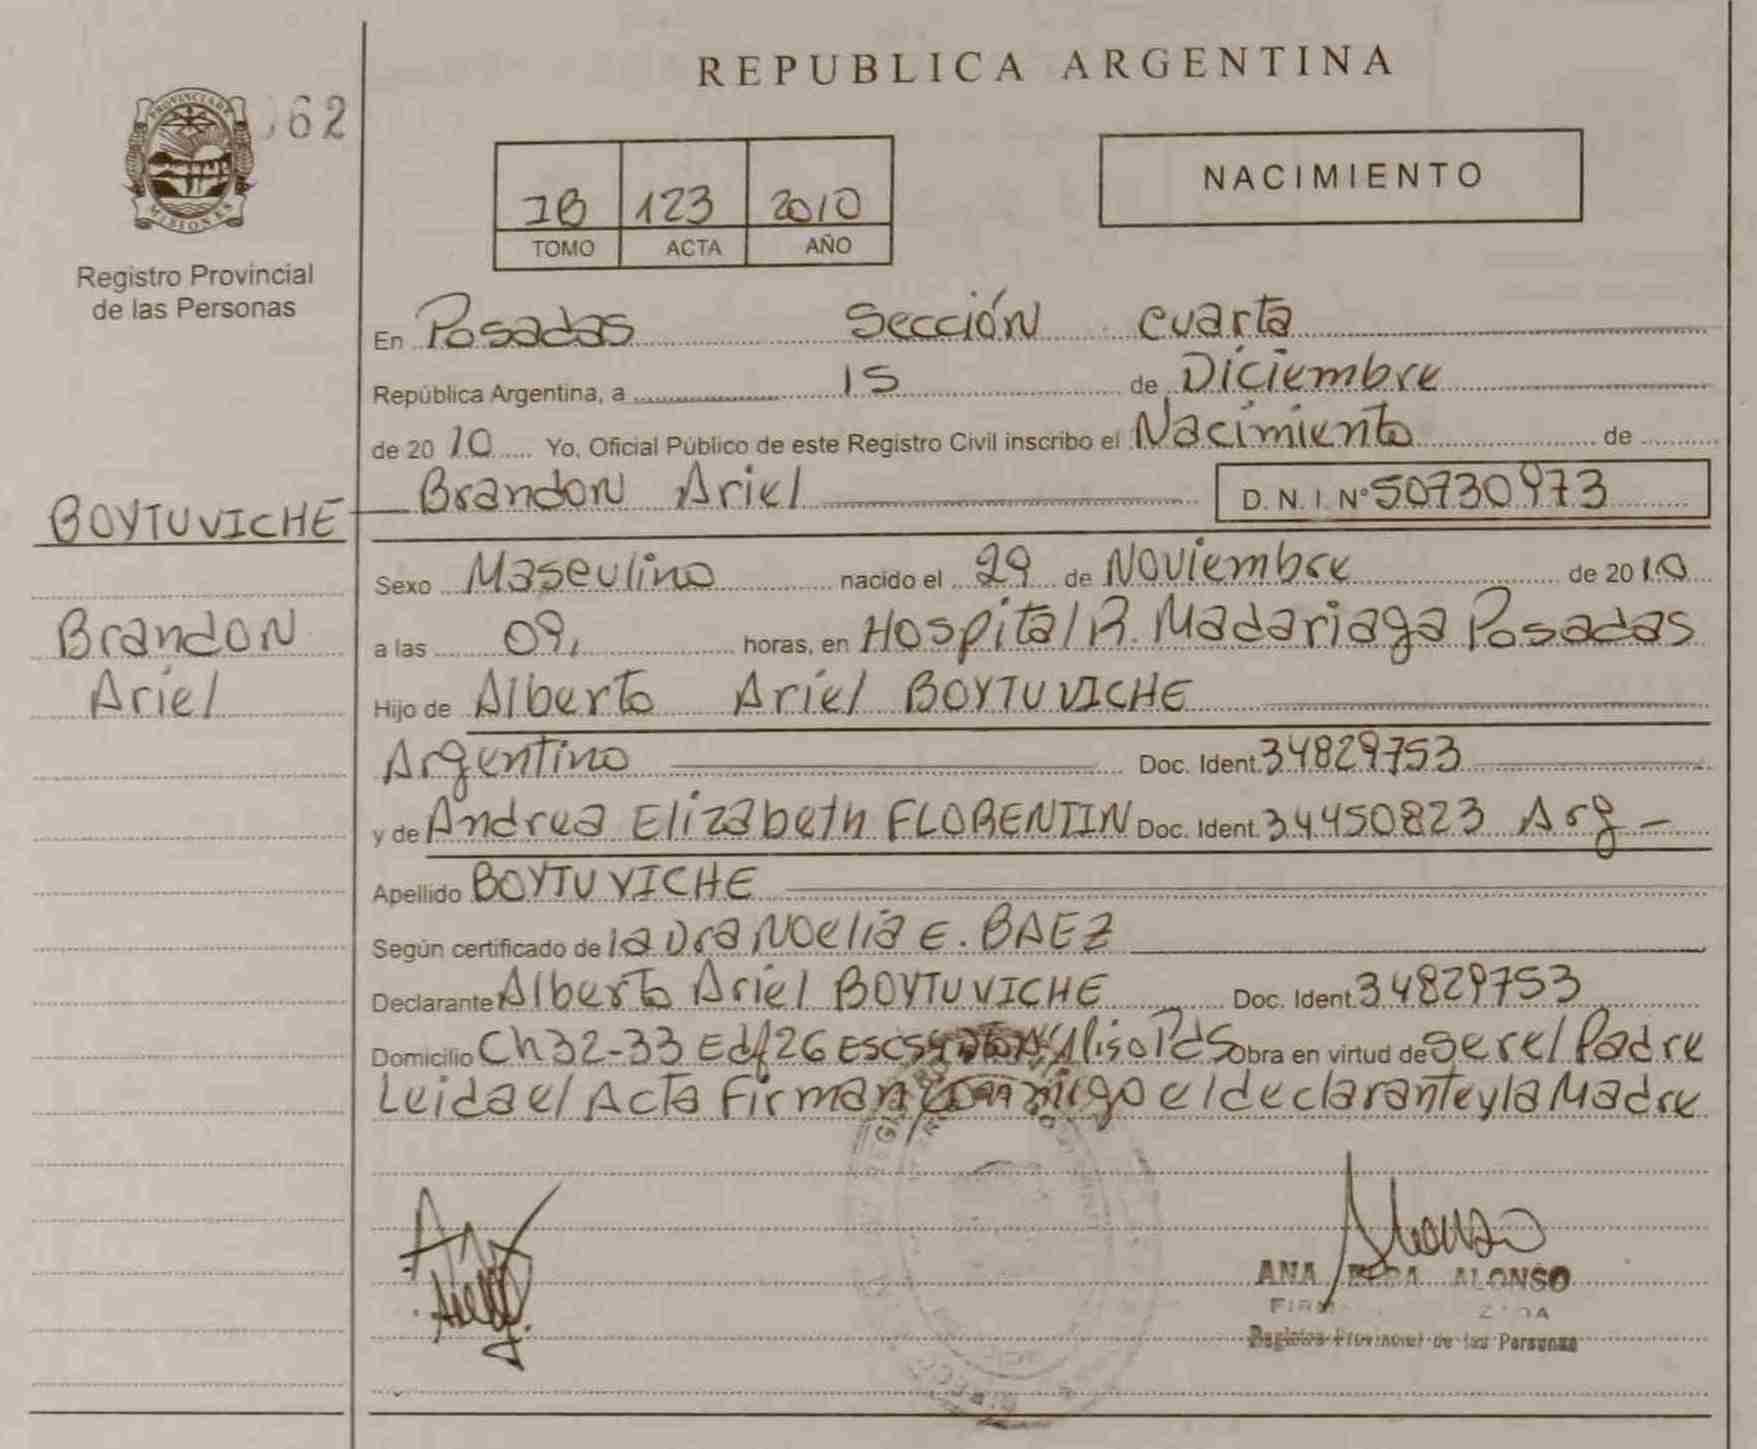 REPUBLICA ARGENTINA
PROVINCIA DE
MISIONES
62
Registro Provincial
de las Personas
123 2010
TOMO ACTA AÑO
NACIMIENTO
En Posadas Sección cuarta
República Argentina, a 15 de Diciembre
de 2010 Yo, Oficial Público de este Registro Civil inscribo el Nacimiento de
BOYTUVICHE
Brandon Ariel D.N.I. Nº 50730973
Sexo Masculino nacido el 29 de Noviembre de 2010
Brandon
Ariel
a las 09, horas, en Hospital R. Madariaga Posadas
Hijo de Alberto Ariel BOYTUVICHE
Argentino Doc. Ident. 34829753
y de Andrea Elizabeth FLORENTIN Doc. Ident. 34450823 Arg -
Apellido BOYTUVICHE
Según certificado de la Dra Noelia E. BAEZ
Declarante Alberto Ariel BOYTUVICHE Doc. Ident. 34829753
Domicilio Ch 32-33 Edf 26 Pds Obra en virtud de ser el Padre
Leida el Acta Firman conmigo el declarante y la Madre
ANA ALONSO
Registro Provincial de las Personas